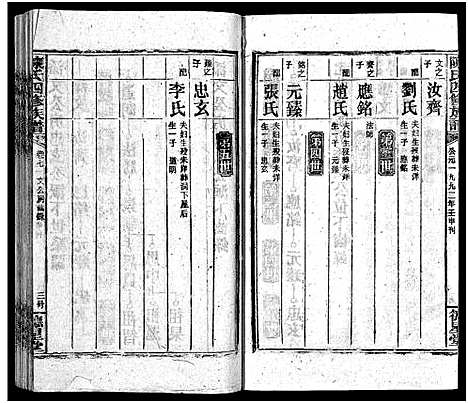 陳氏四修族譜
公元一九九二年壬申刊
文之子
汝齊
配
劉氏
夫妇生殁葬未详
生一子 應銘
第三世
齊之子
應銘
法師
配
趙氏
夫妇生殁葬未详
生一子 元臻
第四世
銘之子
元臻
配
張氏
夫妇生殁葬未详
生一子 忠玄
第五世
臻之子
忠玄
配
李氏
夫妇生殁未详葬洞下屋后
生一子 道明
陳氏四修族譜